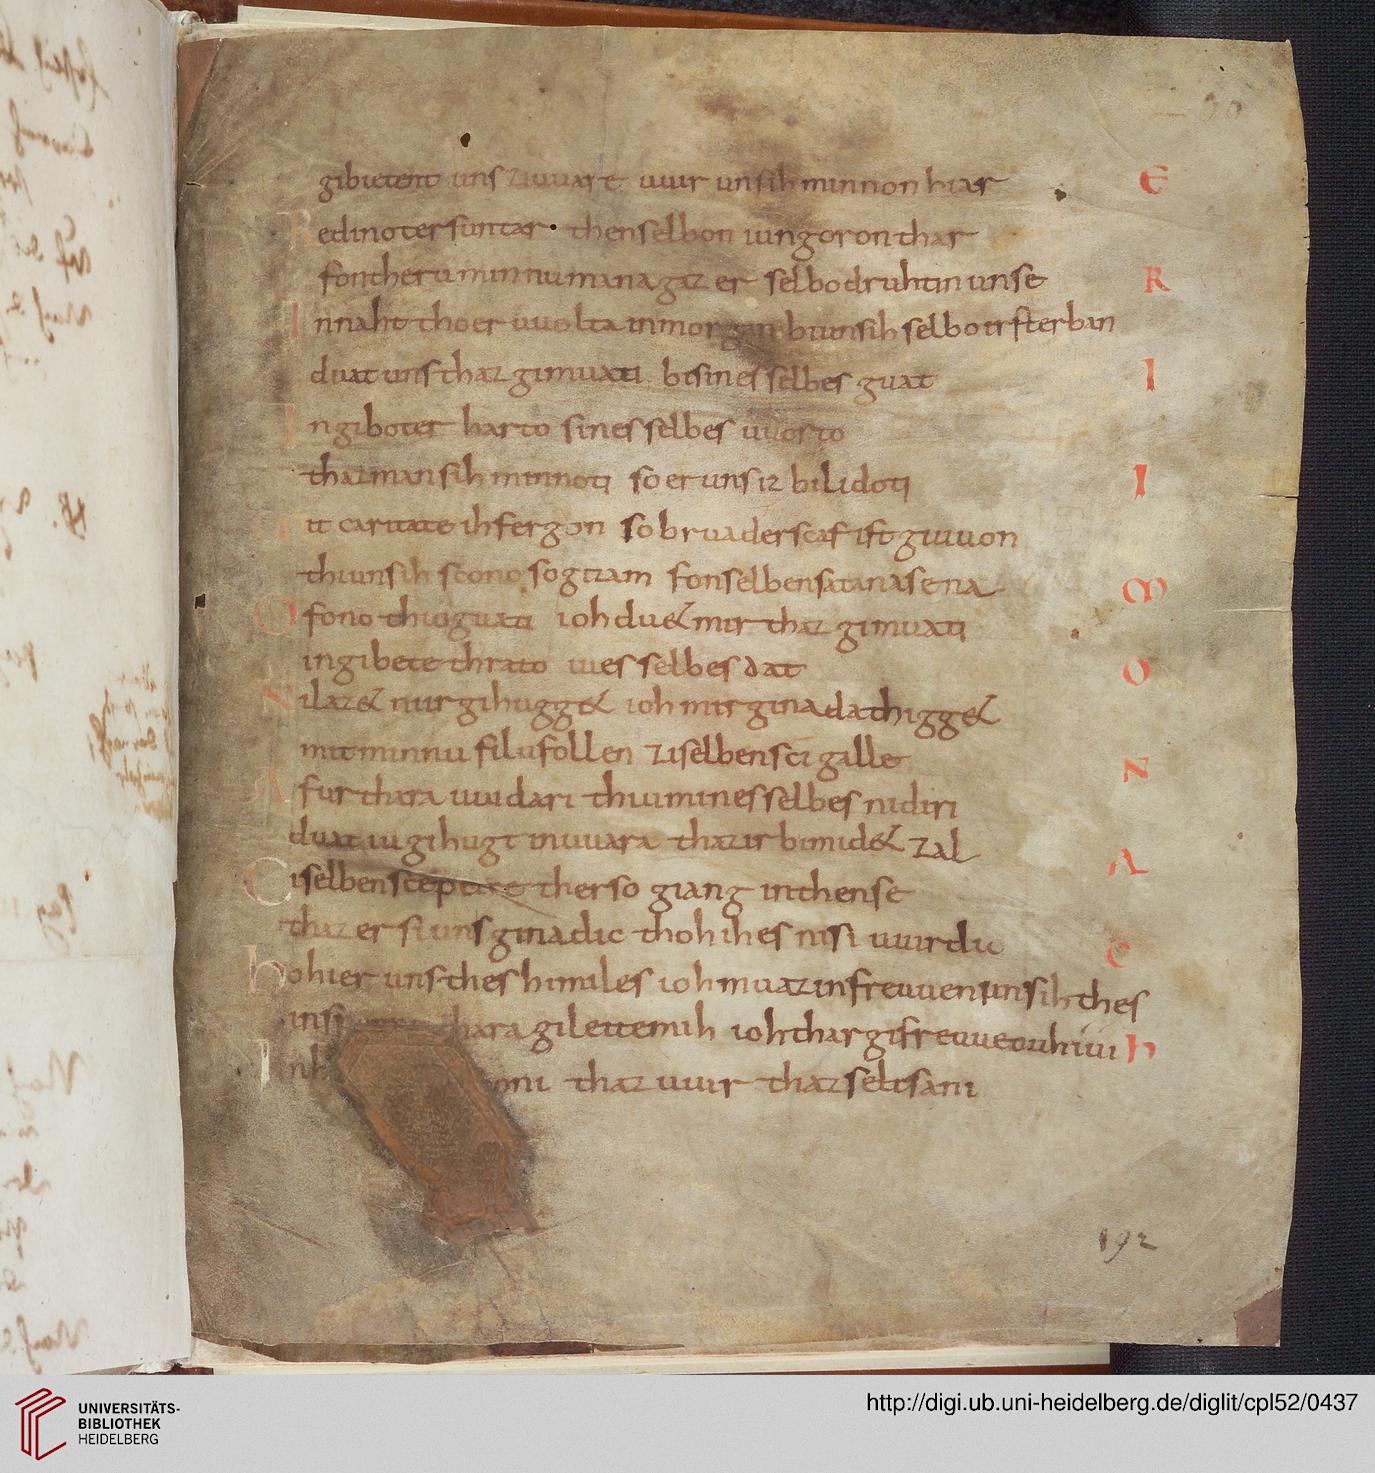 gibietent uns ziuuare uuir unsih minnon hiar E
Redinoter suntar then selbon iungoron thar
fon theru minnu managaz er selbo druhtin unse R
In naht tho er uuolta in morgan bi unsih selbo irsterban
duat uns thaz gimuati bi sines selbes guat I
In giboter harto sines selbes uuorto
thaz man sih minnoti so er uns iz bilidoti I
Mit caritate ih fergon so bruaderscaf ist giuuon
thi unsih scono so gizam fon selben satanase na M
Ofono thio guati ioh duet mir thaz gimuati
in gibete thrato iues selbes dat O
Nilazet nir gihugget ioh mir ginada thigget
mit minnu filu follen zi selben sci galle N
Afur thara uuidari thiu mines selbes nidiri
duat iu gihugt in uuara thaz ir bimidet zal A
Ci selben sce petre ther so giang in then se
thaz er si uns ginadic thoh ih es nisi uuirdic C
Hohi er uns thes himiles ioh muazin freuuen unsih thes
insi thara gileite mih ioh thar gifreuue ouh iuih H
In omi thaz uuir thaz seltsani
192
UNIVERSITÄTS-
BIBLIOTHEK
HEIDELBERG
http://digi.ub.uni-heidelberg.de/diglit/cpl52/0437